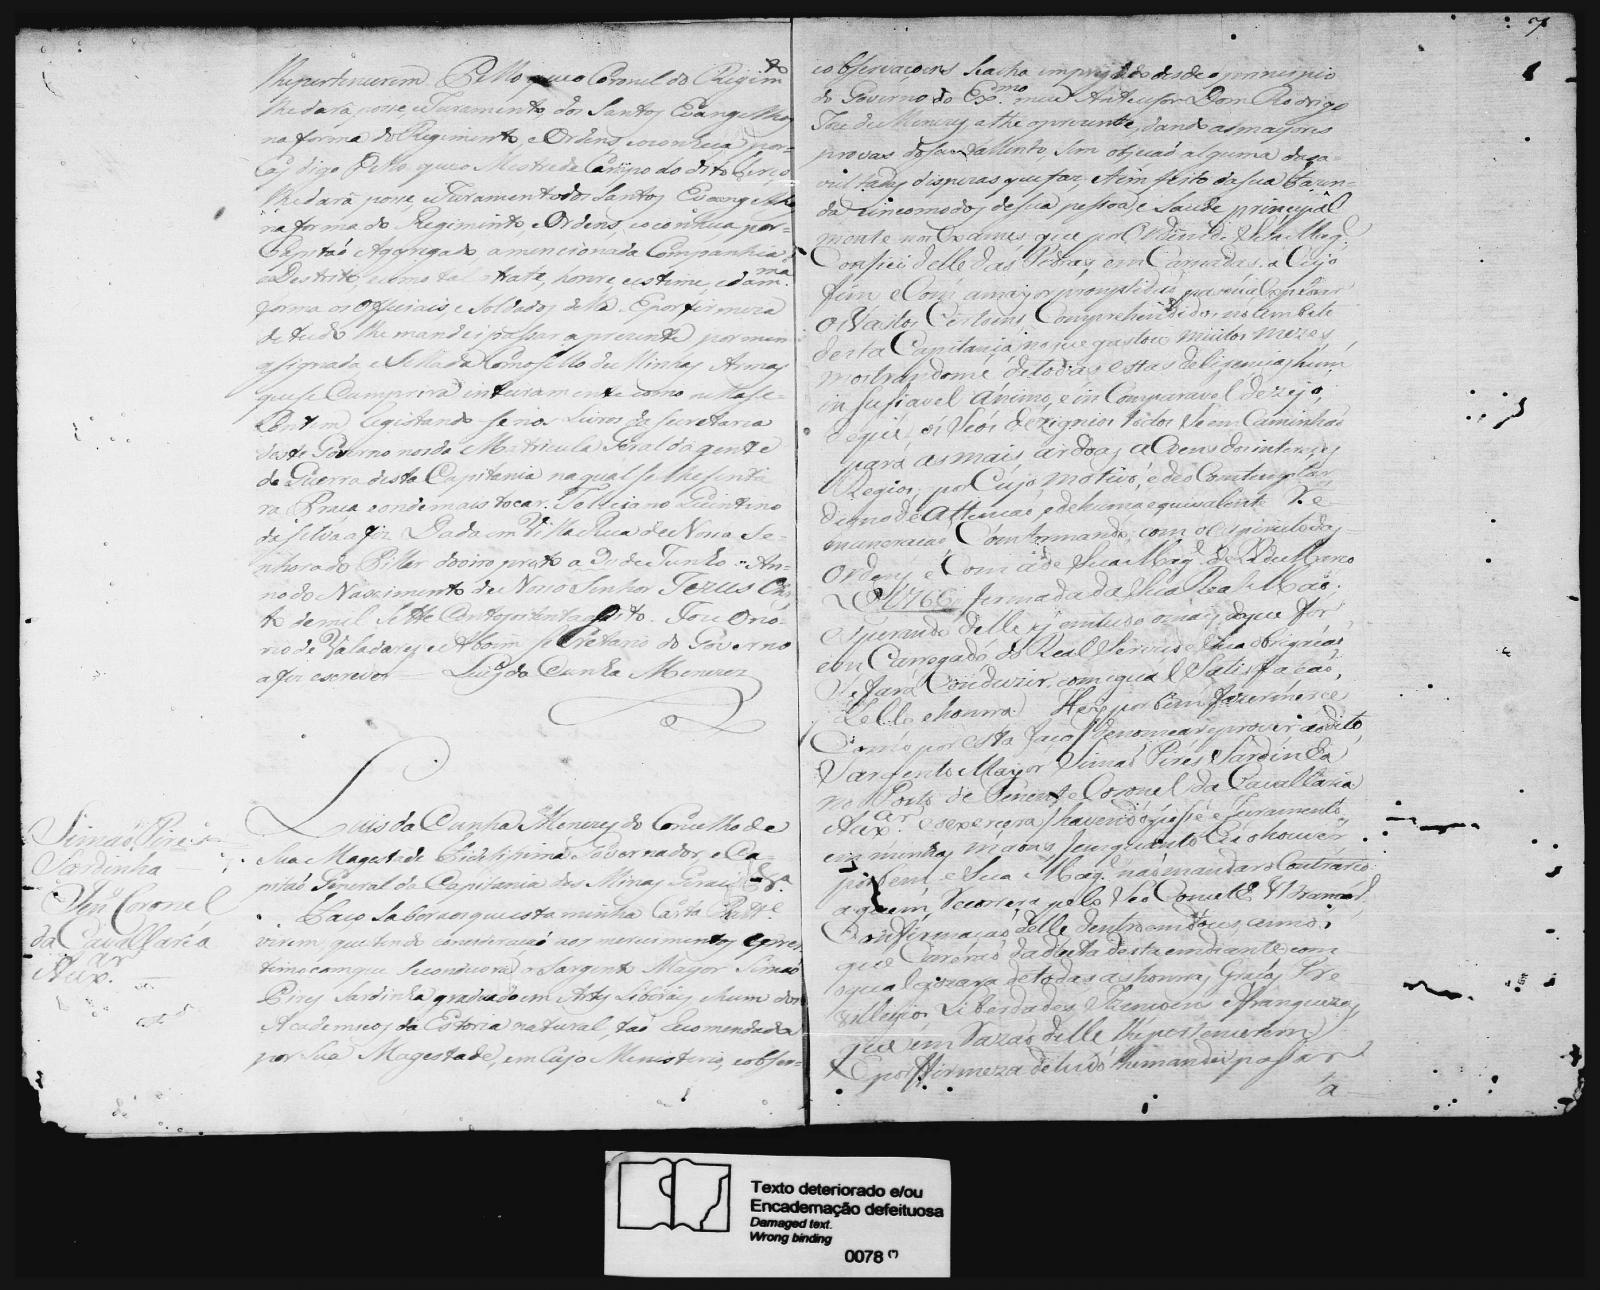 lhe pertencerem. Pello que o Coronel do Regim.to
lhe dará posse, e Juramento dos Santos Evangelhos
na forma do Regimento, e Ordens, e o conheça por
digo Pello que o Mestre de Campo do dito Terço
lhe dará posse, e Juramento dos Santos Evangelhos
na forma do Regimento, e Ordens, e o conheça por
Capitaõ Aggregado a mencionada Companhia
e Destrito, e como tal o trate, honre, e estime, e da m.ma
forma os Officiais, e Soldados della. E por firmeza
de tudo lhe mandei passar a prezente por mim
assignada e Sellada com o Sello de Minhas Armas
que se Cumprirá inteiramente como nella se
Contem Registando-se nos Livros da Secretaria
deste Governo nos da Matricula Geral da gente
de Guerra desta Capitania na qual se lhe sentá
rá Praça, e onde mais tocar. Feliciano Quintino
da Silva a fez. Dada em Villa Rica de Nossa Se-
nhora do Pillar do oiro preto a de Junho An-
no do Nascimento de Nosso Senhor Jezus Chris
to de mil Sette Centos oitenta, e oito. Joze Ono-
rio de Valadares e Aboim Secretario do Governo
a fez escrever Luis da Cunha Menezes
Simaõ Pires
Sardinha
Ten. Coronel
da Cavallaria
Aux.ar
Luis da Cunha Menezes do Concelho de
Sua Magestade Fidelissima Governador, e Ca-
pitaõ General da Capitania das Minas Geraes &.a
Faço Saber aos que esta minha Carta Pat.e
virem, que tendo consideraçaõ aos merecimentos e pres
timo com que Se conduz o Sargento Mayor Simaõ
Pires Sardinha graduado em Artes Liberaes e hum dos
Academicos da Estoria natural, taõ Recomendada
por Sua Magestade, em Cujo Menisterio, e obser-
7
e observaçoens Se acha empregado desde o principio
do Governo do Ex.mo meu Antecessor Dom Rodrigo
Joze de Menezes athe o prezente, dando as mayores
provas do Seu tallento, Sem objeçaõ alguma das a-
vultadas dispezas que faz, aSim feito da Sua fazen-
da e incomodos de Sua pessoa, e Saude, principal
mente nos Exames que por Ordem de Sua Mag.
Confiei delle das Pedras em Camadas, a Cujo
fim e Com a mayor promptidaõ
os Vastos Certoens Comprehendidos no Limbite
desta Capitania, no que gastou muitos mezes
mostrandome de todas estas deligencias hum
insasiavel animo, e inComparavel dezejo,
de que os Seos dezignios todos Se emCaminhaõ
para as mais ardoas aCoens dos interesses
Regios, por Cujo motivo, e de o Contemplar
digno de attençaõ, e de huma equivalente Re-
muneraçaõ Comformandome com o espirito das
Ordens, e Com a de Sua Mag. de de Março
de 1766 firmada da Sua Real Maõ,
esperando delle q em tudo o mais de que for
en Carregado do Real Servico e Sua obrigaçaõ
Se fará Conduzir com igual Satisfaçaõ,
Zello e honra. Hey por bem fazer merce
Como por esta faço de nomear e prover ao dito
Sargento Mayor Simaõ Pires Sardinha
no Posto de Tenente Coronel da Cavallaria
Aux.ar e o exercera havendo que fé e Juramento
em minhas maons Se em quanto Eu o houver
por bem, e Sua Mag. naõ mandar o Contrario
a quem Recorrera pelo Seo Conc.º Ultramar.
Confirmaçaõ delle dentro em dous annos,
que Correraõ da data desta em diante com
o qual gozará de todas as honras, Graças, Pre
vilegios, Liberdades, Izencoens e Franquezas
que em Razaõ delle lhe pertencerem
E por Firmeza de tudo lhe mandei passar
a
Texto deteriorado e/ou
Encadernação defeituosa
Damaged text.
Wrong binding
0078 (*)